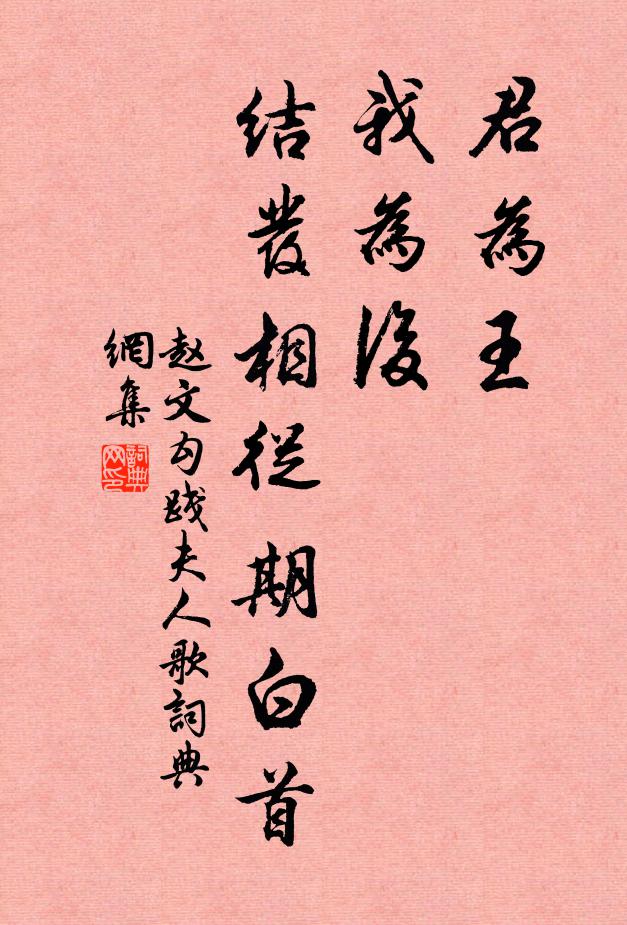 君為王
我為後
結發相從期白首
赵文勾践夫人歌詞典
網集
詞典网印